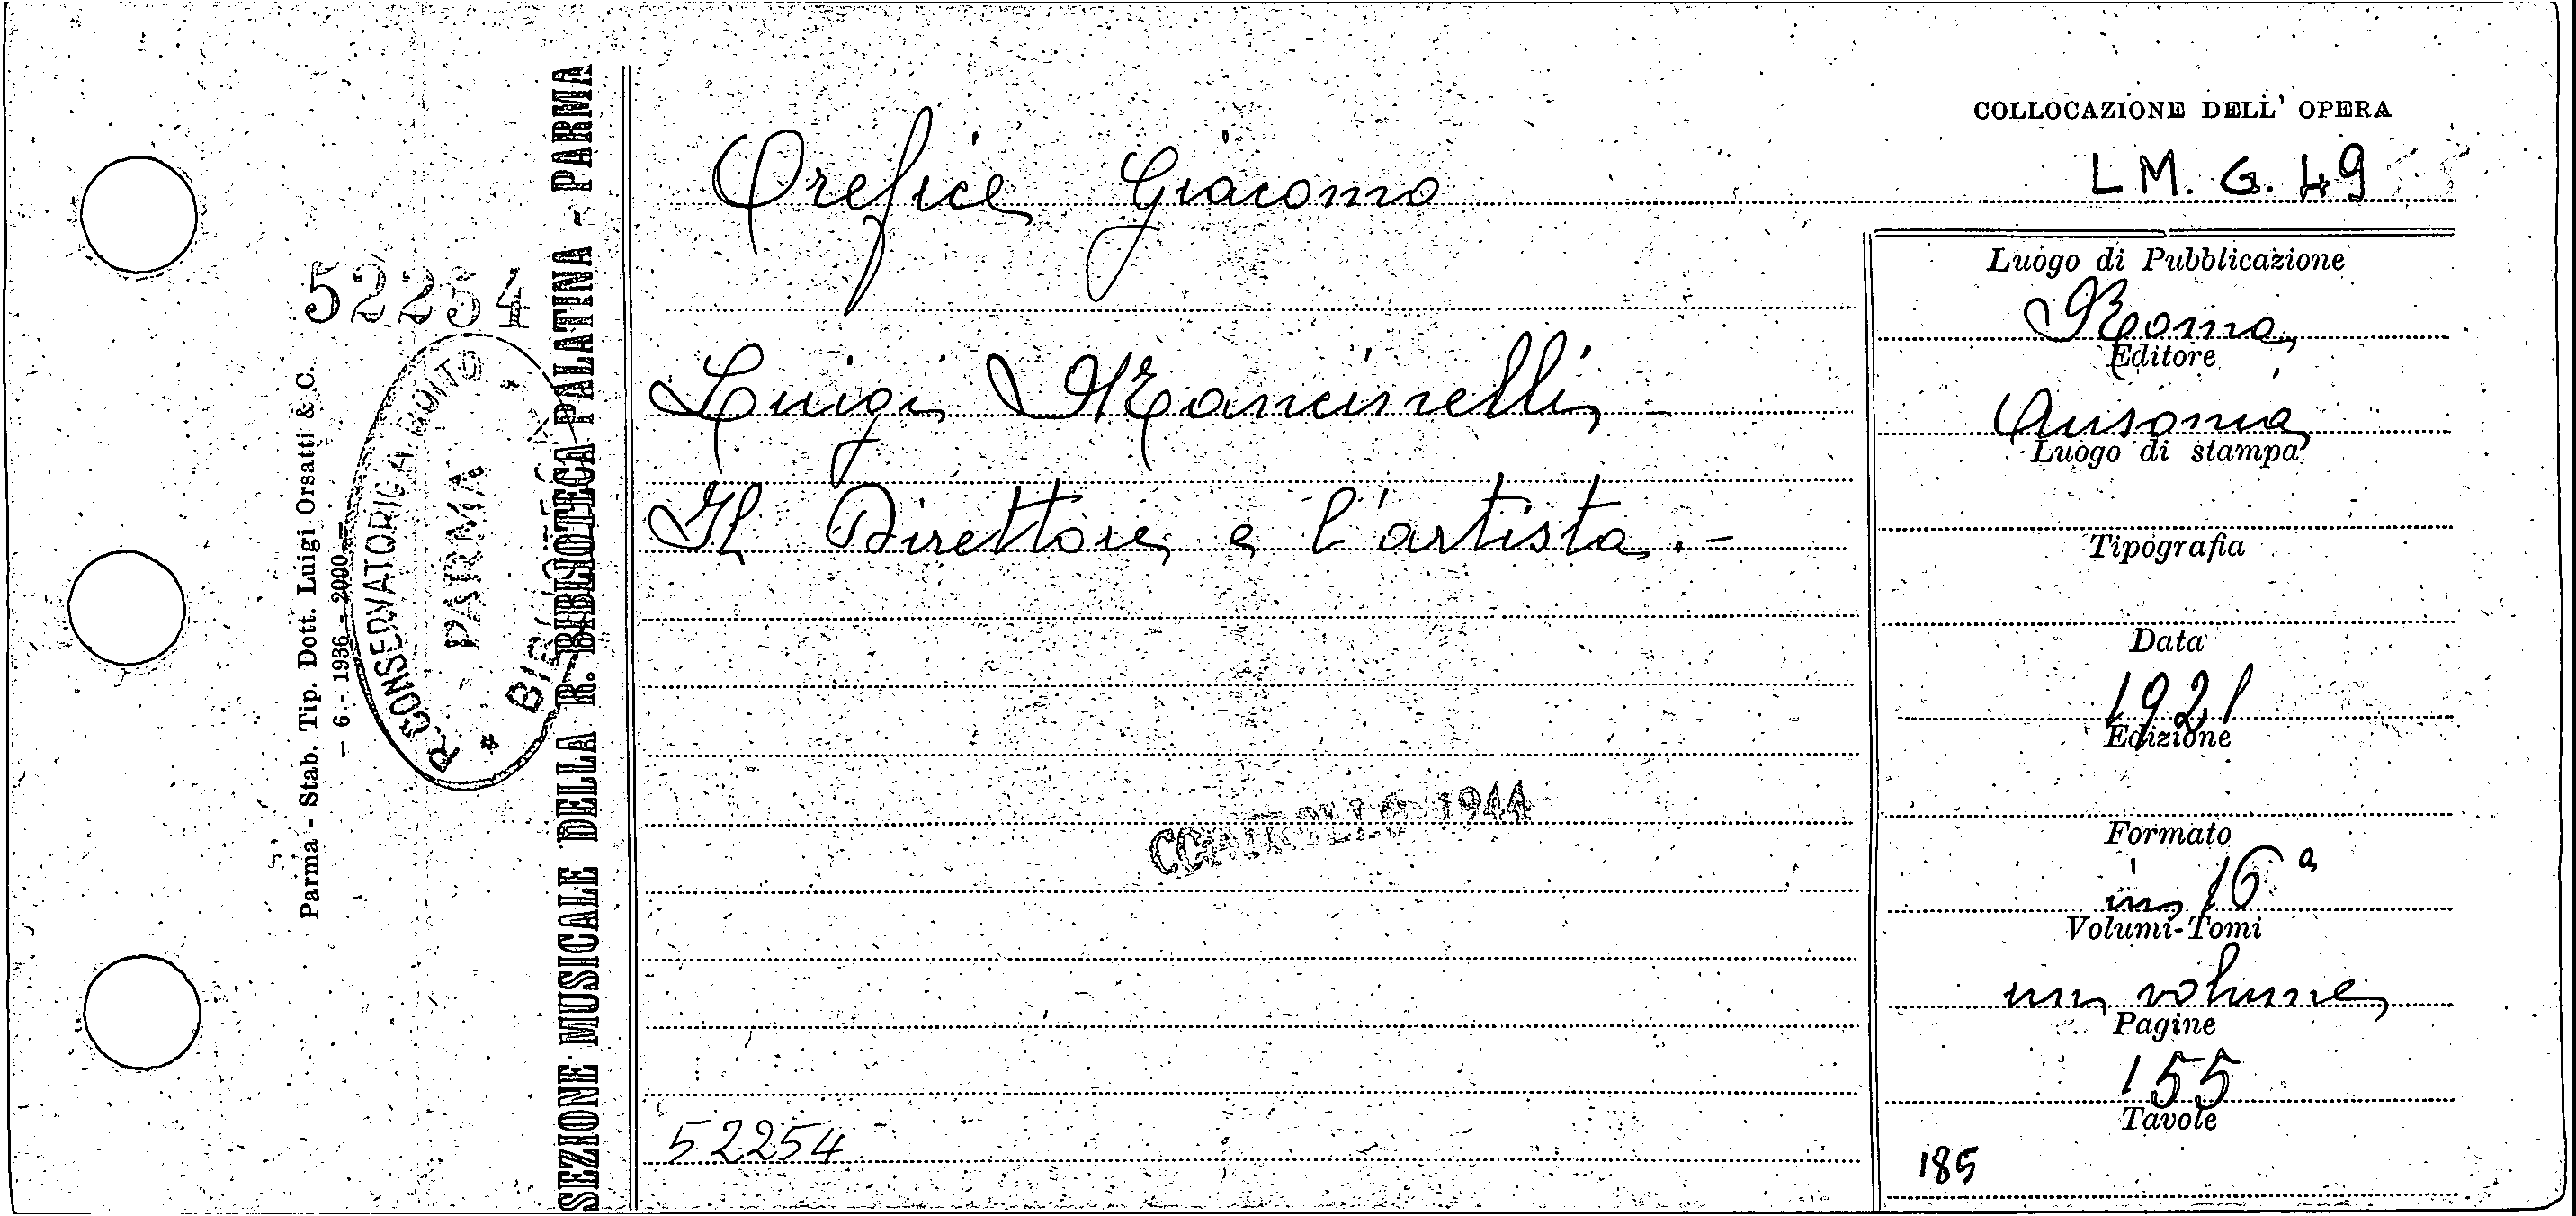 SEZIONE MUSICALE DELLA R. BIBLIOTECA PALATINA - PARMA
Parma - Stab. Tip. Dott. Luigi Orsatti & C.
— 6 - 1936 - 2000 —
52254
R. CONSERVATORIO A. BOITO
PARMA
COLLOCAZIONE DELL' OPERA
L M. G. 49
Orefice Giacomo
Luigi Mancinelli -
Il Direttore e l'artista. -
CONTROLLO 1944
52254
Luogo di Pubblicazione
Roma
Editore
Ausonia
Luogo di stampa
Tipografia
Data
1921
Edizione
Formato
in 16ª
Volumi-Tomi
un volume
Pagine
155
Tavole
185